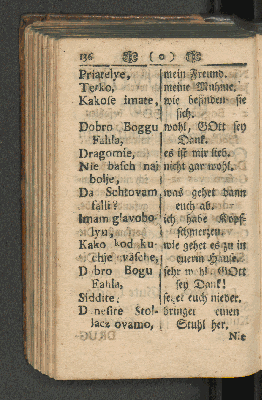 136 ( 0 )
Priatelye, mein Freund.
Terko, meine Muhme.
Kakose imate, wie befinden sie
sich.
Dobro Boggu wohl, GOtt sey
Fahla, Dank.
Dragomie, es ist mir lieb.
Nie basch naj nicht gar wohl.
bolje,
Da Schtovam was gehet dann
falli? euch ab.
Imam glavobo- ich habe Kopf-
lyu, schmerzen.
Kako kod ku- wie gehet es zu in
chie vasche, euerin Hause.
Dobro Bogu sehr wohl GOtt
Fahla, sey Dank!
Siddite, setzet euch nieder.
Donesite Stol- bringet einen
lacz ovamo, Stuhl her.
Nie